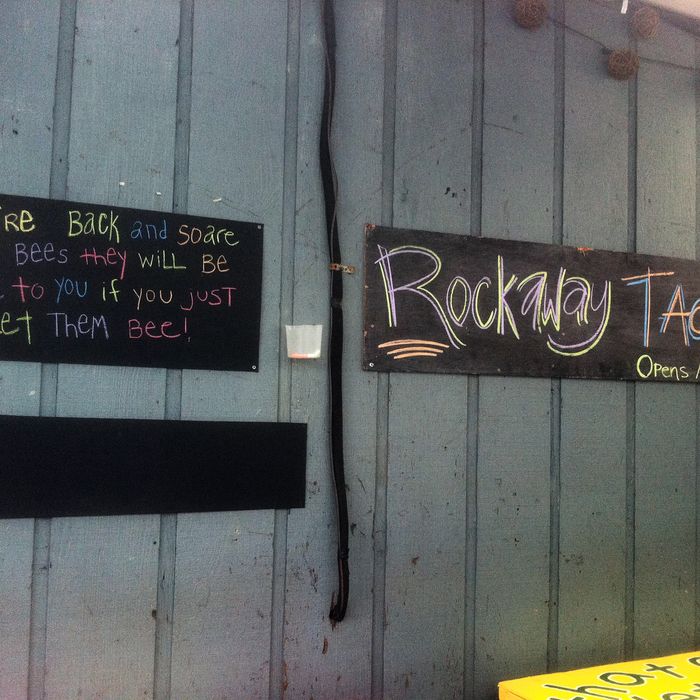 're Back and so are
Bees they will be
to you if you just
et them Bee!
Rockaway Tac
Opens